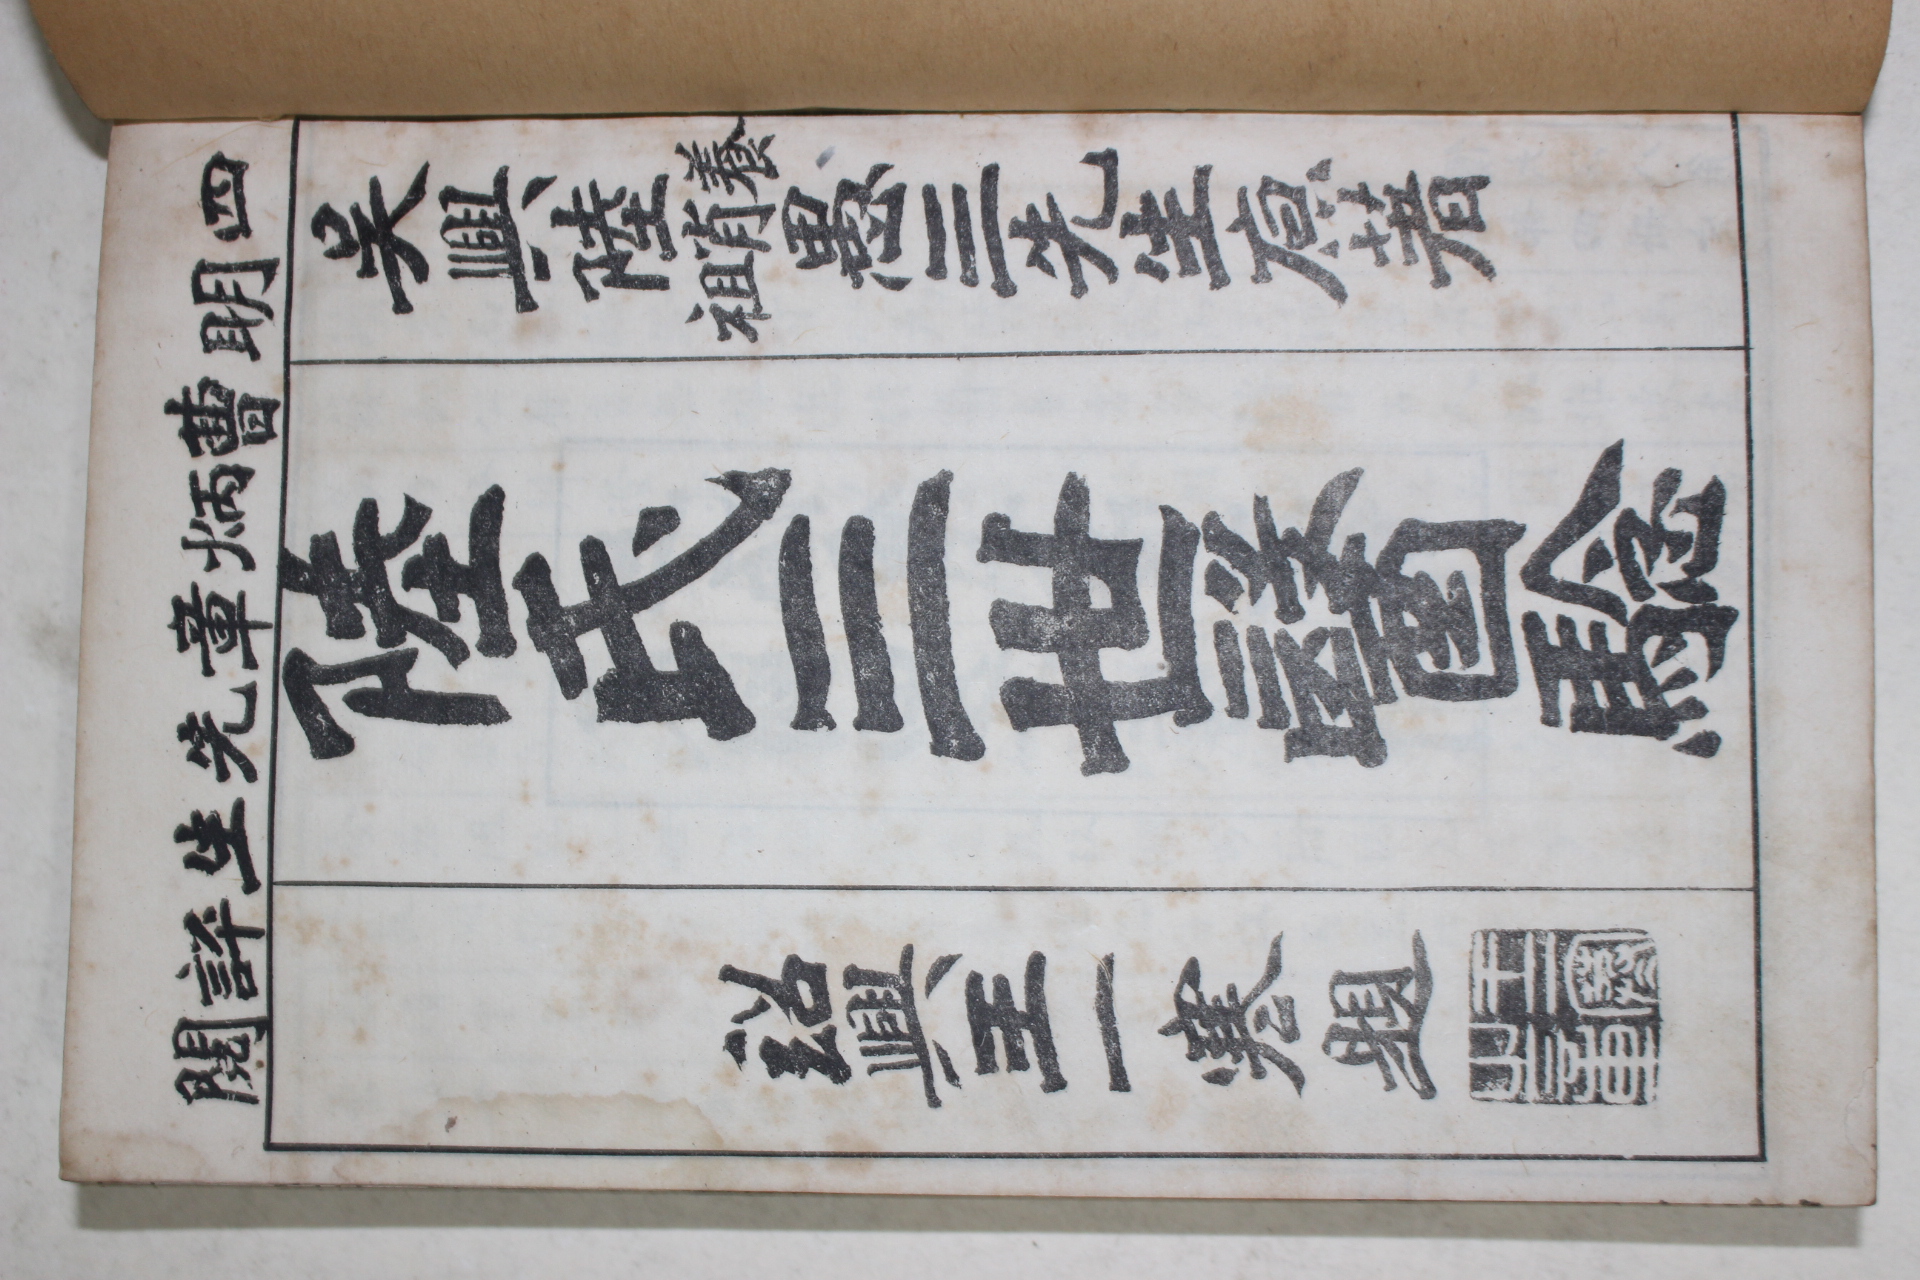 四明曹炳章先生評閱
吳興陸養肖祖愚三先生原著
陸氏三世醫驗
紹興王一寒題